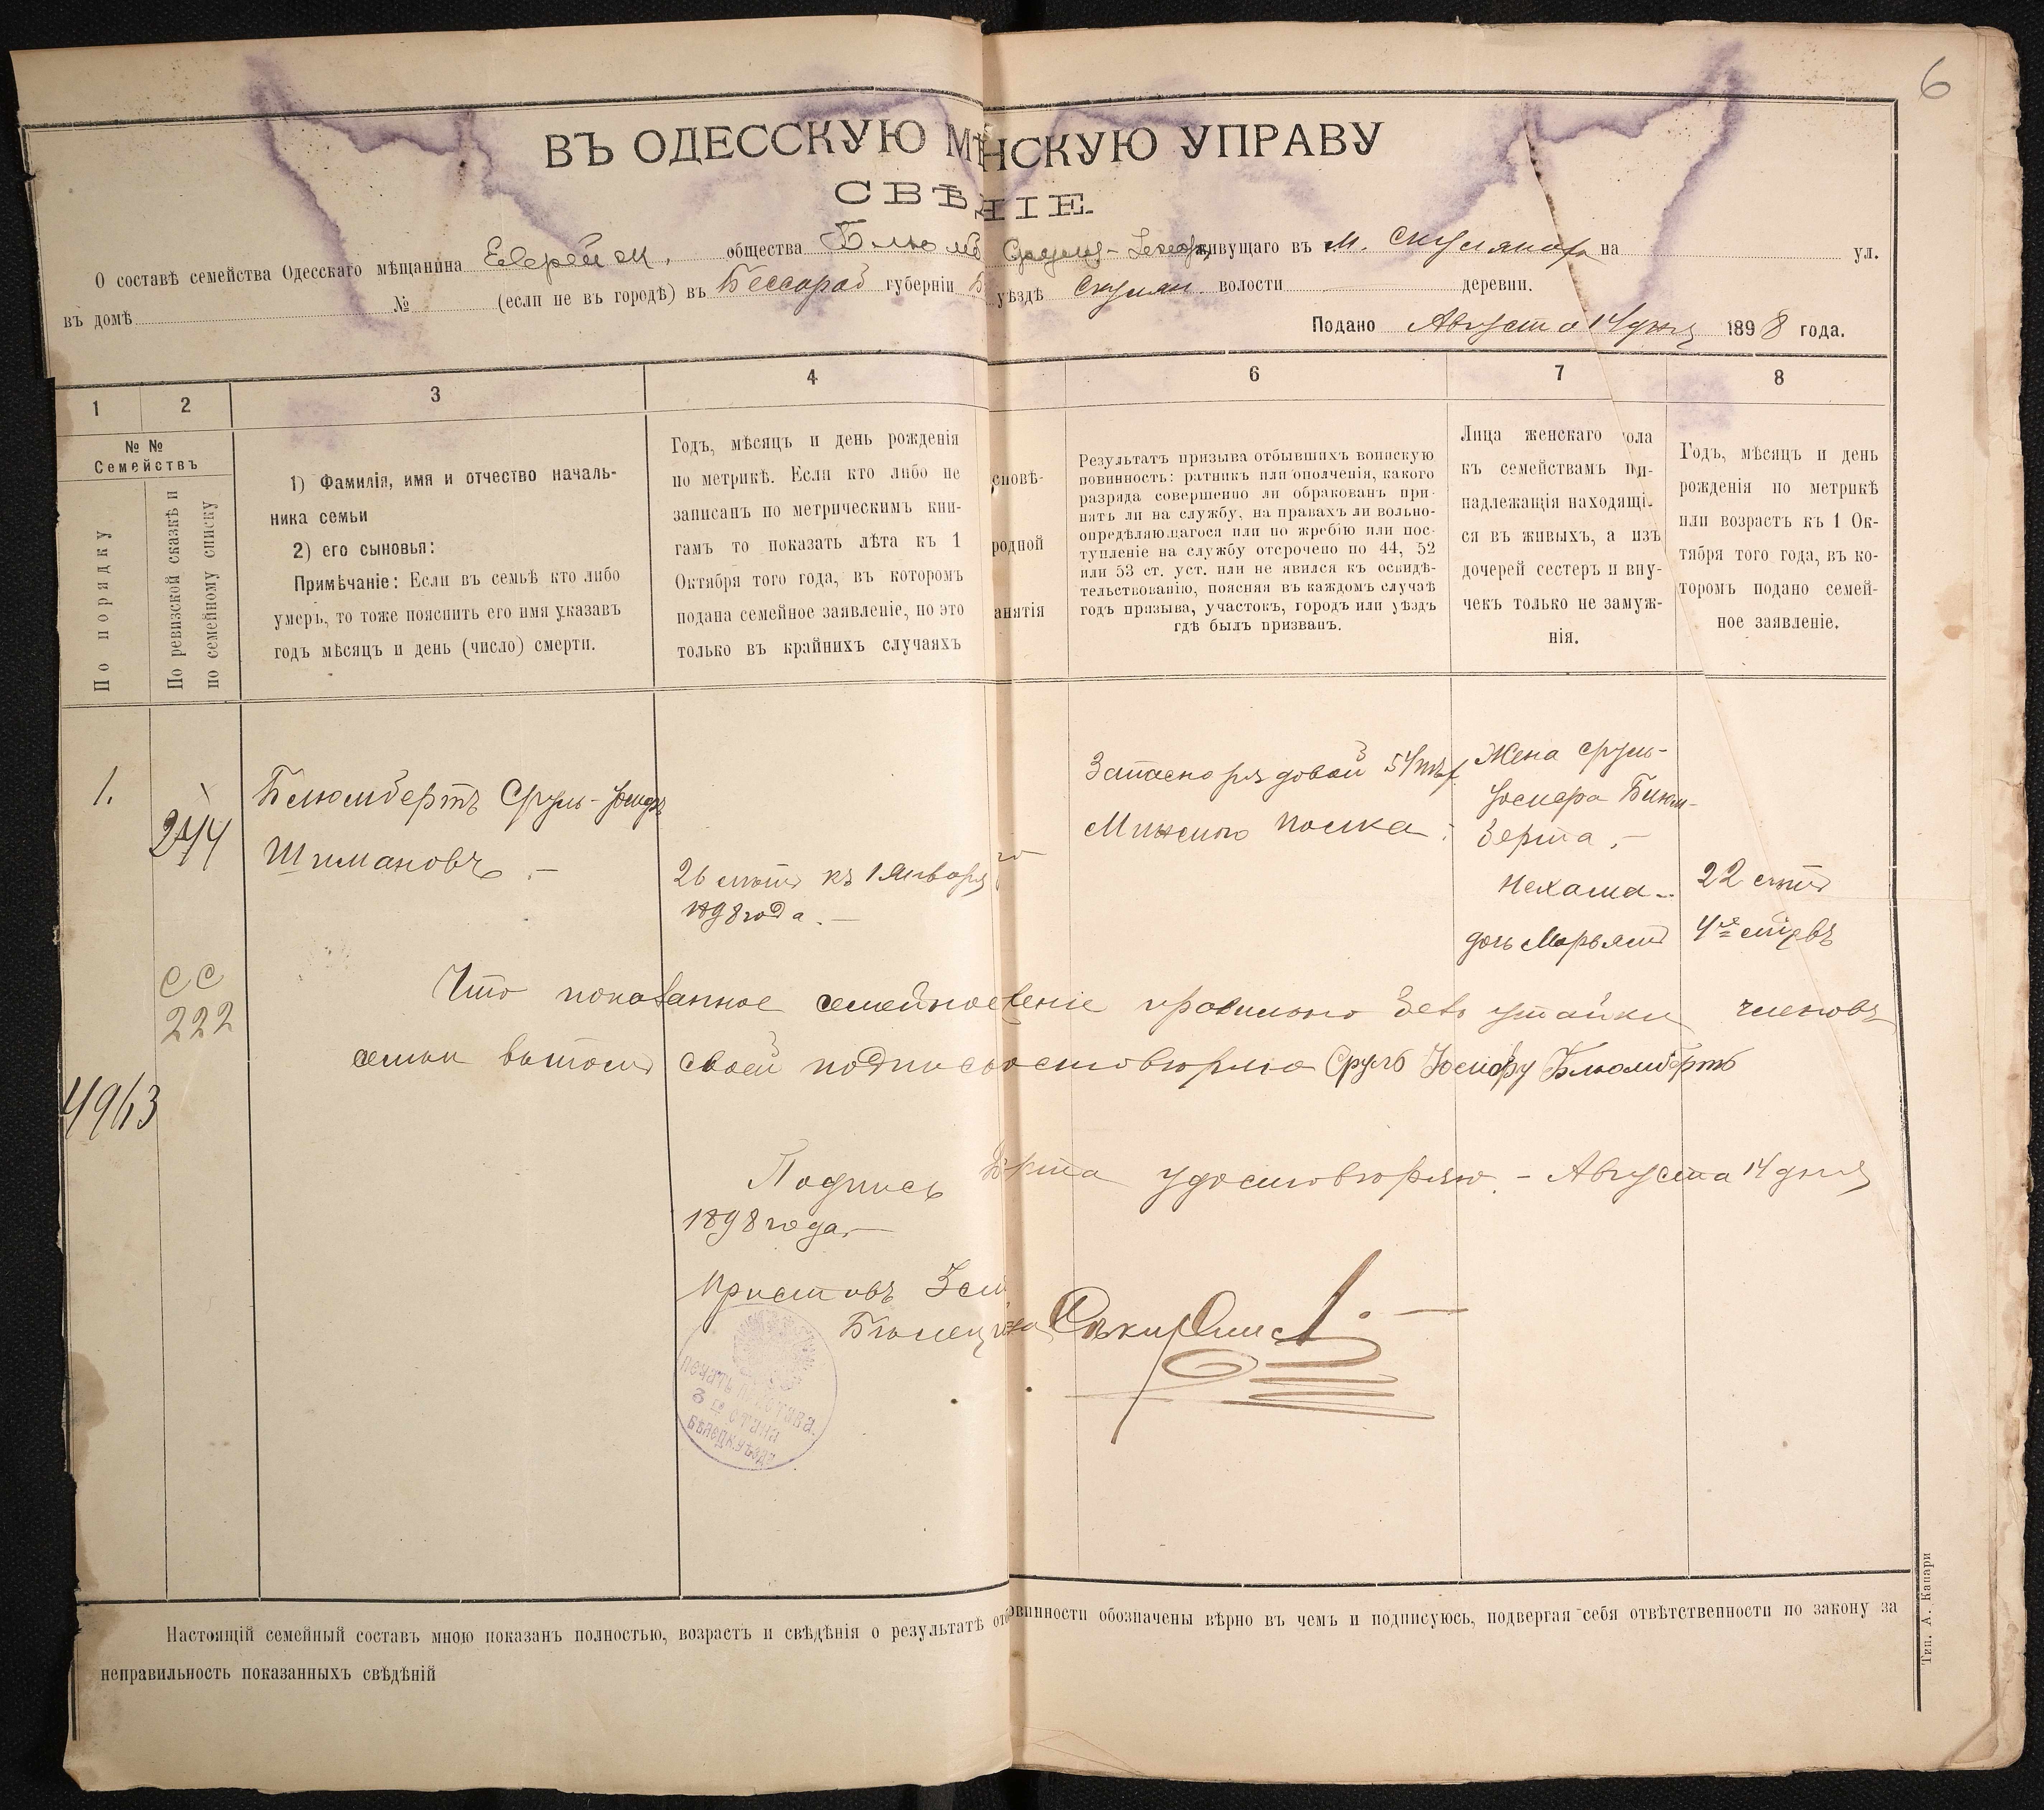 6
ВЪ ОДЕССКУЮ МѢ НСКУЮ УПРАВУ
СВѢ НІЕ.
О составѣ семейства Одесскаго мѣщанина Еврейск. общества живущаго въ м. Скулянахъ на ул.
въ домѣ № (если не въ городѣ) въ Бессараб губерніи Б уѣздѣ Скулян. волости деревни.
Подано Августа 14 дня 1898 года.
1 2 3 4 6 7 8
№ №
Семействъ
По порядку
По ревизской сказкѣ и
по семейному списку
1) Фамилія, имя и отчество началь-
ника семьи
2) его сыновья:
Примѣчаніе: Если въ семьѣ кто либо
умеръ, то тоже пояснить его имя указавъ
годъ мѣсяцъ и день (число) смерти.
Годъ, мѣсяцъ и день рожденія
по метрикѣ. Если кто либо не
записанъ по метрическимъ кни-
гамъ то показать лѣта къ 1
Октября того года, въ которомъ
подана семейное заявленіе, но это
только въ крайнихъ случаяхъ
сповѣ-
родной
анятія
Результатъ призыва отбывшихъ воинскую
повинность: ратникъ или ополченія, какого
разряда совершенно ли обракованъ при-
нятъ ли на службу, на правахъ ли вольно-
опредѣляющагося или по жребію или пос-
тупленіе на службу отсрочено по 44, 52
или 53 ст. уст. или не явился къ освидѣ-
тельствованію, поясняя въ каждомъ случаѣ
годъ призыва, участокъ, городъ или уѣздъ
гдѣ былъ призванъ.
Лица женскаго пола
къ семействамъ при-
надлежащія находящі-
ся въ живыхъ, а изъ
дочерей сестеръ и вну-
чекъ только не замуж-
нія.
Годъ, мѣсяцъ и день
рожденія по метрикѣ
или возрастъ къ 1 Ок-
тября того года, въ ко-
торомъ подано семей-
ное заявленіе.
1.
244
Блюмбертъ Сруль-Іосифъ
Шимановъ.
26 лѣтъ къ 1 января
1898 года.
Запасно рядовой 54 пѣх.
Минскаго полка.
Жена Сруль-
Іосифа Блюм-
берта.
Нехама
22 лѣтъ
дочь Марьямъ
СС
222
4963
Что показанное семейное ... веніе правильно безъ утайки членовъ
семьи въ томъ своей подписью ... стовѣряю Сруль Іосифъ Блюмбертъ
Подпись Б ... рта удостовѣряю. - Августа 14 дня
1898 года.
Приставъ 3
Бѣлецк
печать пристава
3 го стана
бѣлецк. уѣзда
Настоящій семейный составъ мною показанъ полностью, возрастъ и свѣдѣнія о результатѣ от овинности обозначены вѣрно въ чемъ и подписуюсь, подвергая себя отвѣтственности по закону за
неправильность показанныхъ свѣдѣній
Тип. А. Капари